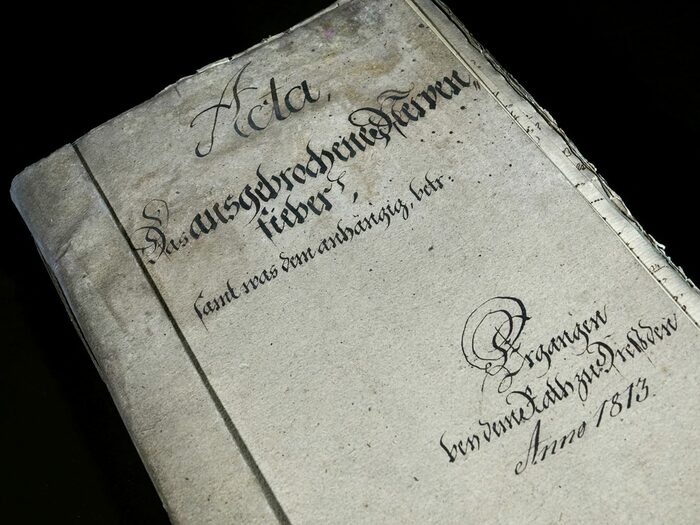 Acta,
Das ausgebrochene Nerven
fieber,
samt was dem anhängig, betr:
Ergangen
bey dem Rath zu Dreßden
Anno 1813.